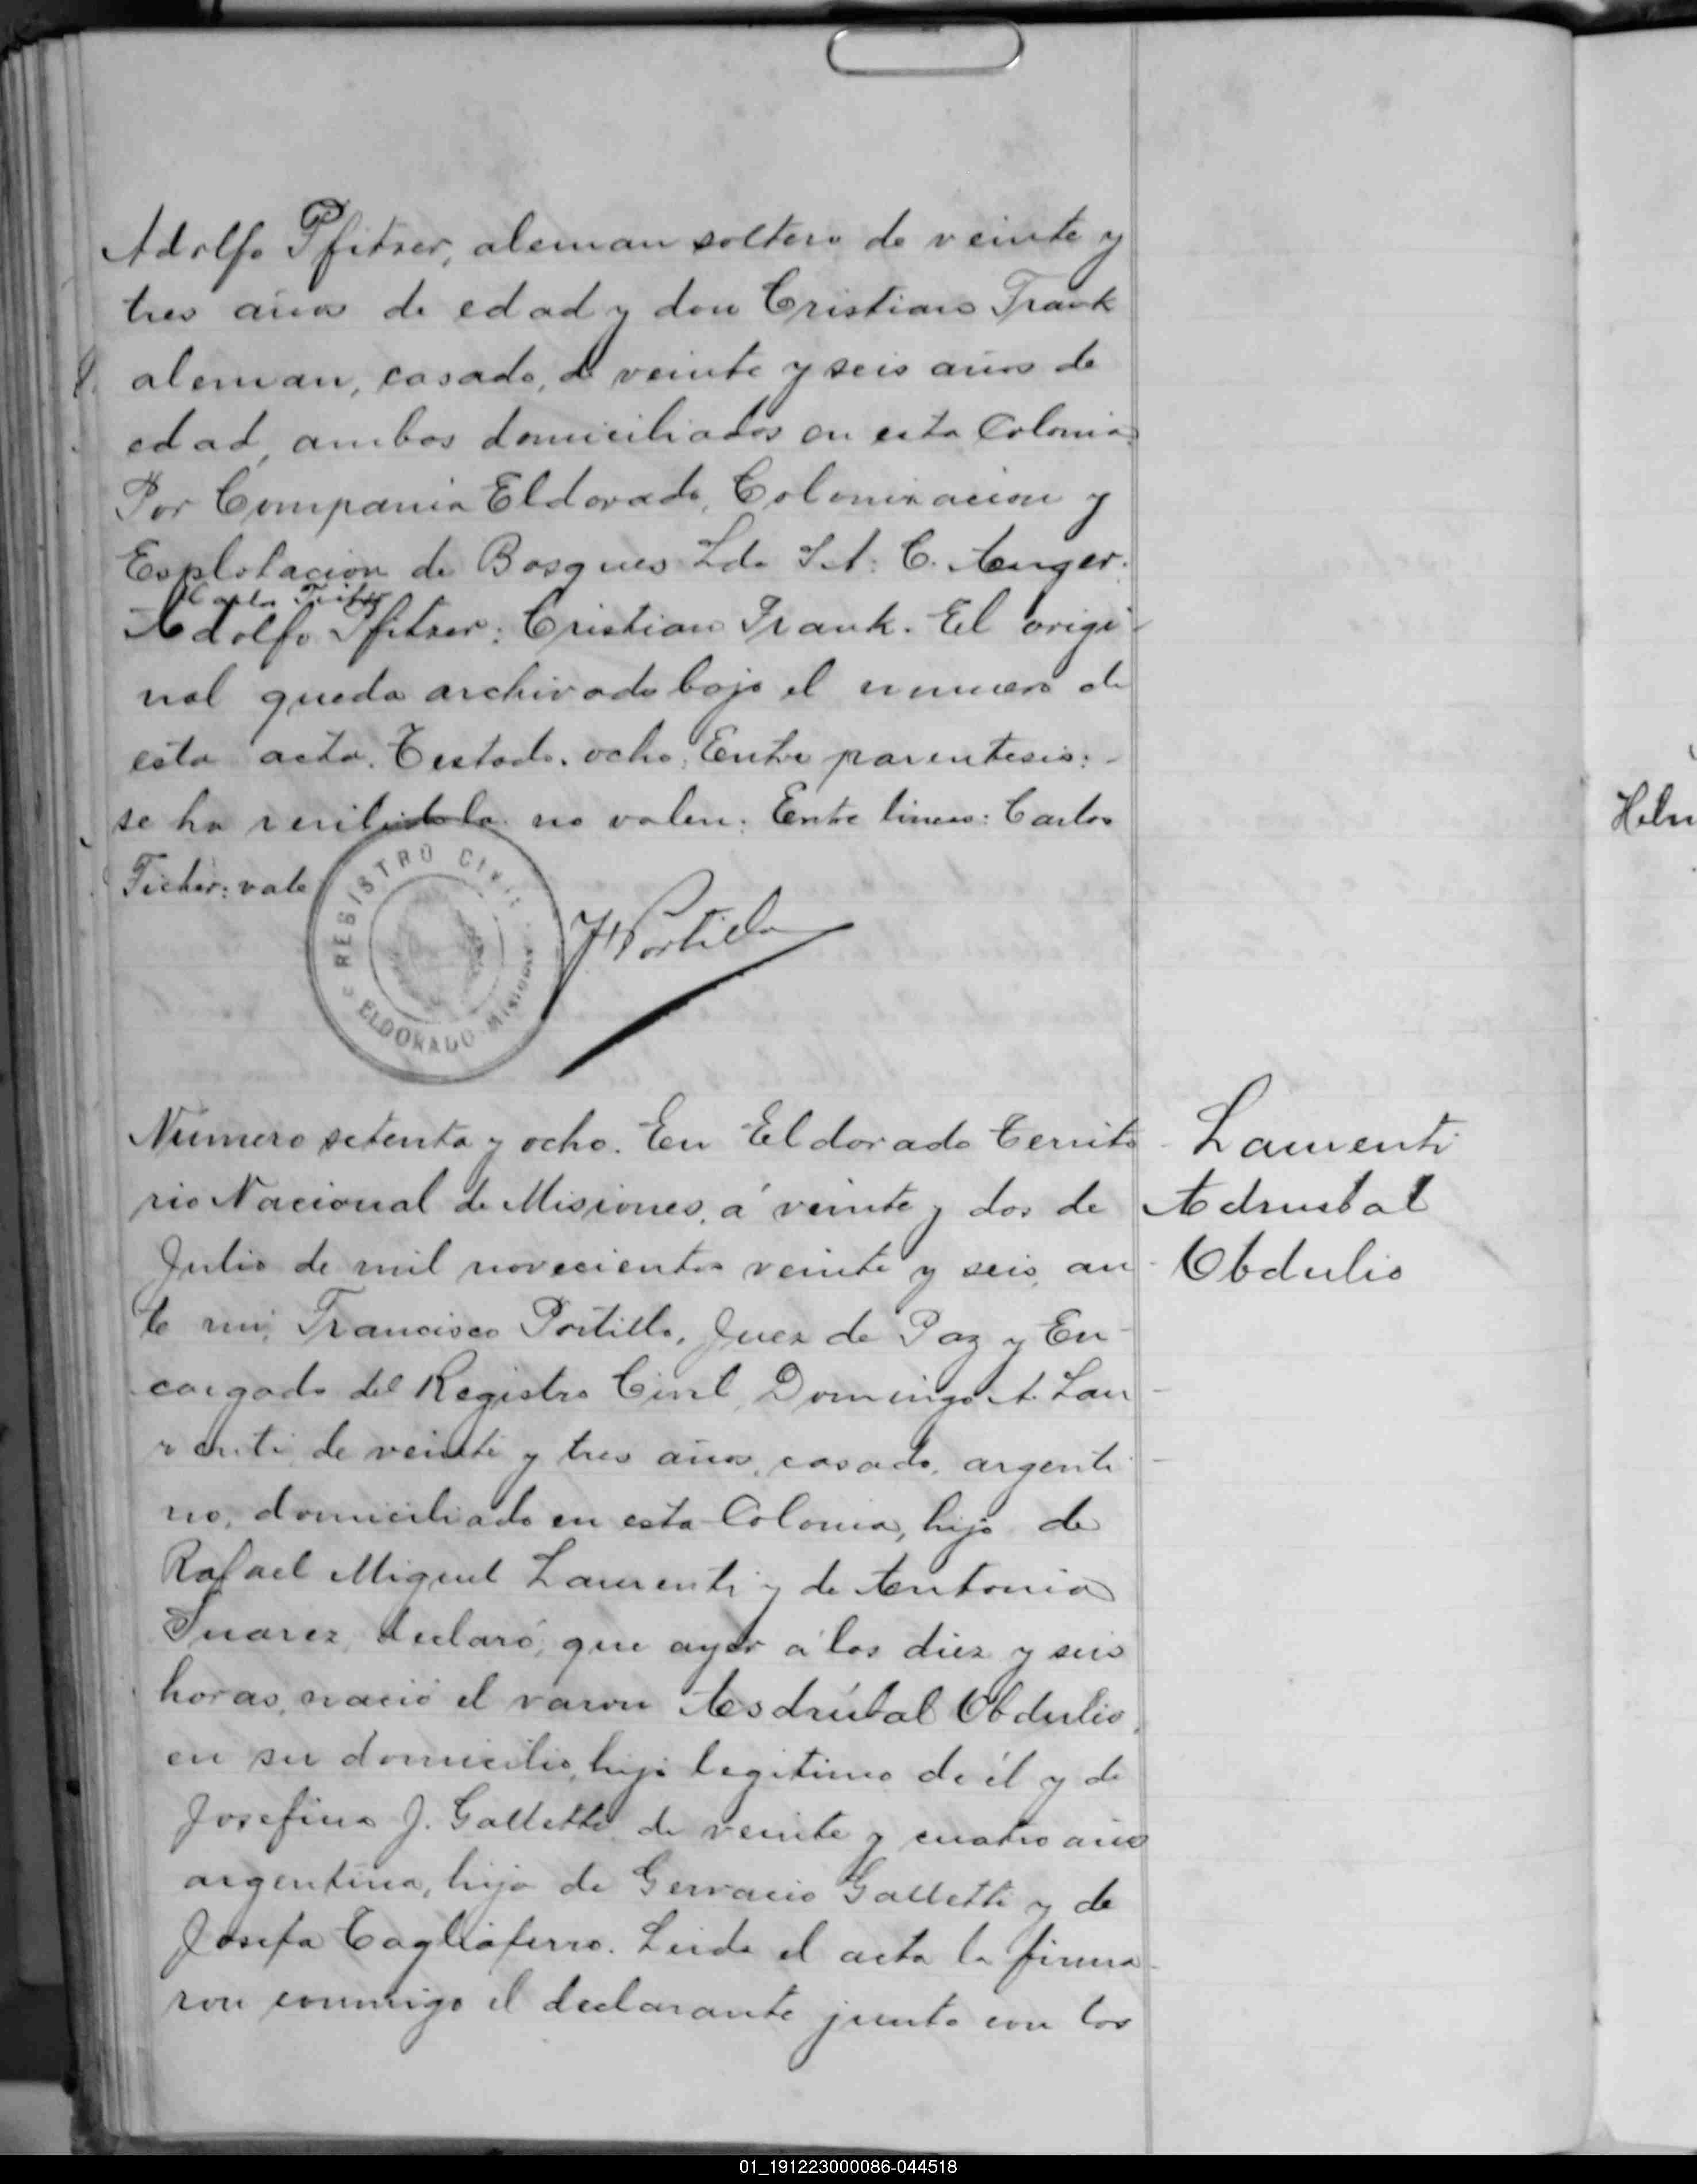 Adolfo Pfitzer, aleman soltero de veinte y
tres años de edad y don Cristian Frank
aleman, casado, de veinte y seis años de
edad, ambos domiciliados en esta Colonia
Por Compania Eldorado, Colonizacion y
Explotacion de Bosques Lda S. A. C. Auger.
Adolfo Pfitzer: Cristian Frank. El origi-
nal queda archivado bajo el numero de
esta acta. Testado. ocho. Entre parentesis:-
se ha no valen: Entre lineas: Carlos
vale
REGISTRO CIVIL
ELDORADO Misiones
F Portillo
Numero setenta y ocho. En Eldorado Territo-
rio Nacional de Misiones, á veinte y dos de
Julio de mil novecientos veinte y seis, an-
te mi, Francisco Portillo, Juez de Paz y En-
cargado del Registro Civil, Domingo A. Lau-
renti, de veinte y tres años, casado, argenti-
no, domiciliado en esta Colonia, hijo de
Rafael Miguel Laurenti y de Antonia
Suarez, declaró, que ayer á las diez y seis
horas, nació el varon Asdrúbal Obdulio,
en su domicilio, hijo legitimo de él y de
Josefina J. Galletti de veinte y cuatro años
argentina, hija de Gervacio Galletti y de
Josefa Tagliaferro. Leida el acta la firma-
ron conmigo el declarante junto con los
Laurenti
Adrubal
Obdulio
Helm
01_191223000086-044518